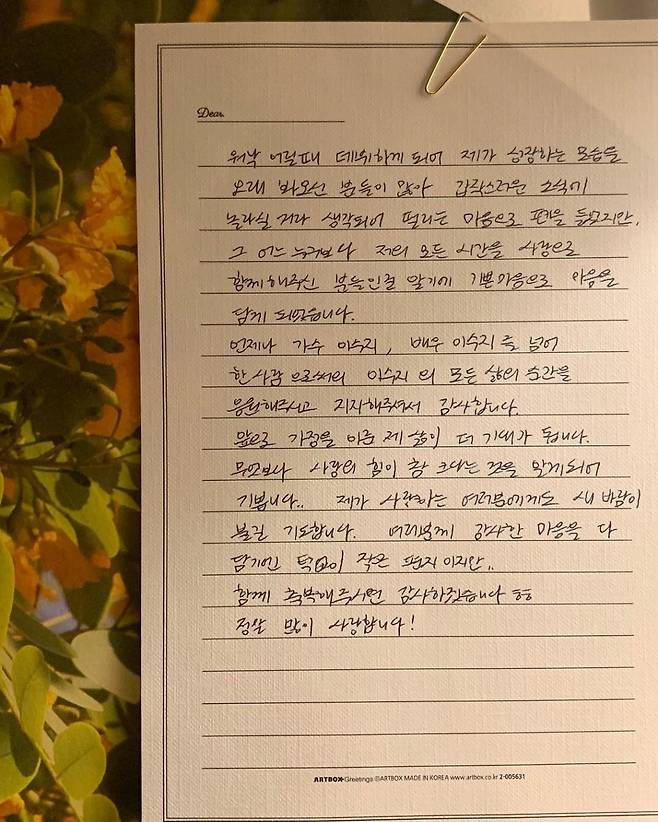 Dear.
워낙 어릴때 데뷔하게 되어 제가 성장하는 모습을
오래 봐오신 분들이 많아 갑작스러운 소식에
놀라실 거라 생각되어 떨리는 마음으로 펜을 들었지만,
그 어느 누구보다 저의 모든 시간을 사랑으로
함께해주신 분들인걸 알기에 기쁜마음으로 마음을
담게 되었습니다.
언제나 가수 이수지, 배우 이수지를 넘어
한사람으로써의 이수지의 모든 삶의 순간을
응원해주시고 지지해주셔서 감사합니다.
앞으로 가정을 이룬 제 삶이 더 기대가 됩니다.
무엇보다 사랑의 힘이 참 크다는 것을 알게되어
기쁩니다.. 제가 사랑하는 여러분에게도 새 바람이
불길 기도합니다. 여러분께 감사한 마음을 다
담기엔 턱없이 작은 편지이지만..
함께 축복해주시면 감사하겠습니다 ㅎㅎ
정말 많이 사랑합니다!
ARTBOX Greetings ⓒARTBOX MADE IN KOREA www.artbox.co.kr 2-005631